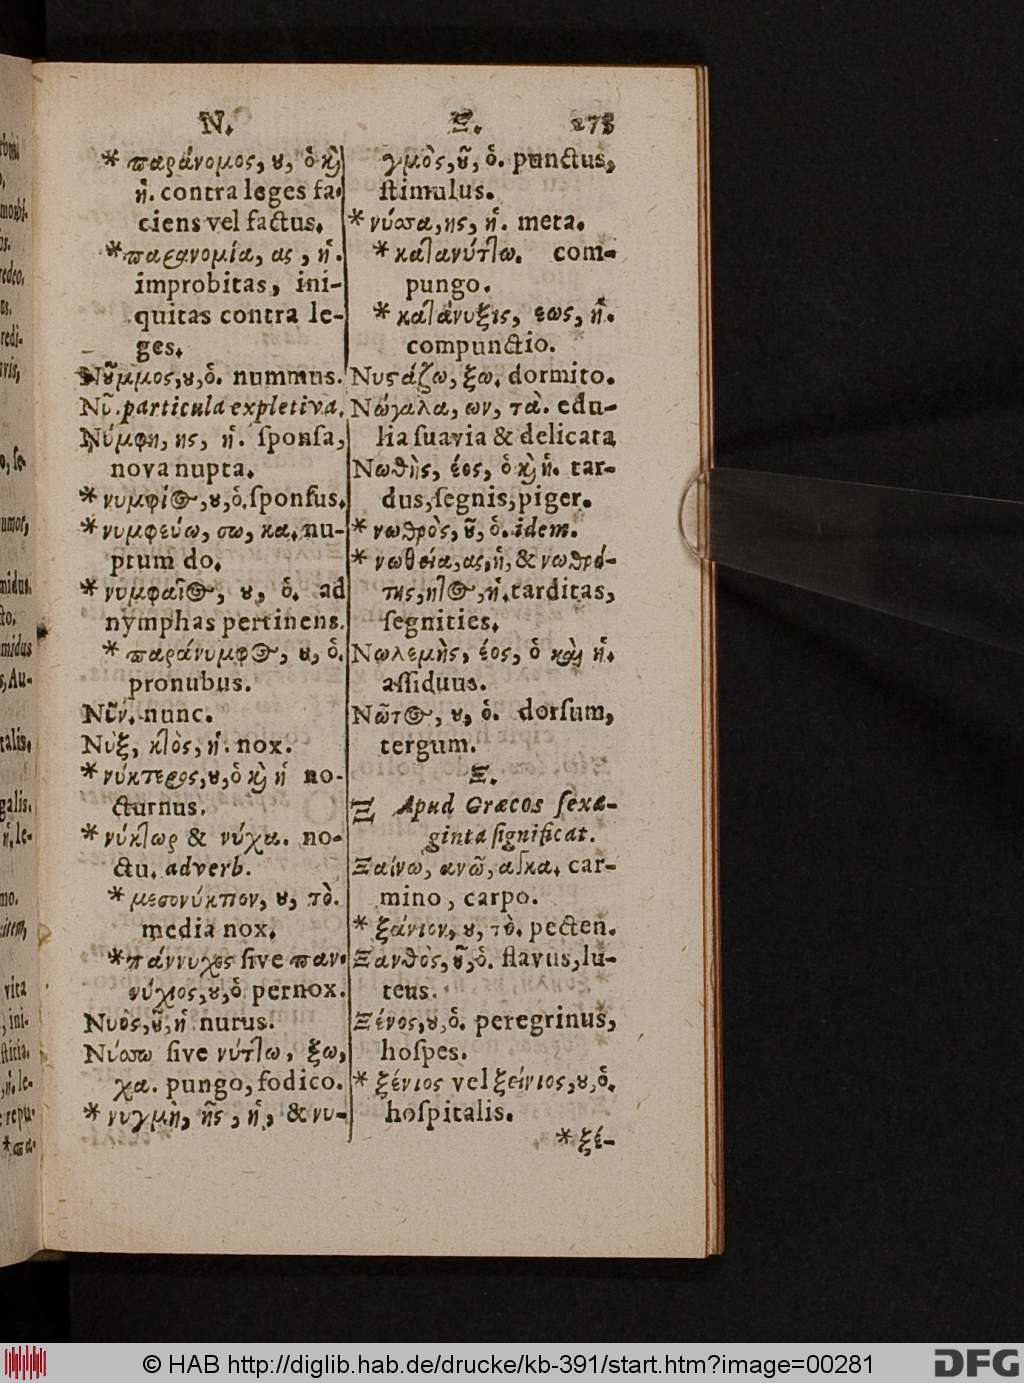 N. Ξ. 273
* παράνομος, ȣ, ὁ κ̀
ἡ. contra leges fa-
ciens vel factus.
* παρανομία, ας, ἡ.
improbitas, ini-
quitas contra le-
ges.
Νȣ͂μμος, ȣ, ὁ. nummus.
Νῦ. particula expletiva.
Νύμφη, ης, ἡ. ſponſa,
nova nupta.
* νυμφίος, ȣ, ὁ. ſponſus.
* νυμφεύω, σω, κα. nu-
ptum do.
* νυμφαῖος, ȣ, ὁ. ad
nymphas pertinens.
* παράνυμφος, ȣ, ὁ.
pronubus.
Νῦν. nunc.
Νὺξ, κτὸς, ἡ. nox.
* νύκτερος, ȣ, ὁ κ̀ ἡ no-
cturnus.
* νύκτωρ & νύχα. no-
ctu. adverb.
* μεσονύκτιον, ȣ, τὸ.
media nox.
* πάννυχος ſive παν-
νύχιος, ȣ, ὁ pernox.
Νυὸς, ȣ͂, ἡ nurus.
Νύσσω ſive νύττω, ξω,
χα. pungo, fodico.
* νυγμὴ, ῆς, ἡ, & νυ-
γμὸς, ȣ͂, ὁ. punctus,
ſtimulus.
* νύσσα, ης, ἡ. meta.
* κατανύττω. com-
pungo.
* κατάνυξις, εως, ἡ.
compunctio.
Νυϛάζω, ξω. dormito.
Νώγαλα, ων, τὰ. edu-
lia ſuavia & delicata
Νωθὴς, έος, ὁ κ̀ ἡ. tar-
dus, ſegnis, piger.
* νωθρὸς, ȣ͂, ὁ. idem.
* νωθεία, ας, ἡ, & νωθρό-
της, ητος, ἡ. tarditas,
ſegnities.
Νωλεμὴς, έος, ὁ καὶ ἡ.
aſſiduus.
Νῶτος, ȣ, ὁ. dorſum,
tergum.
Ξ.
Ξ Apud Græcos ſexa-
ginta ſignificat.
Ξαίνω, ανῶ, αγκα. car-
mino, carpo.
* ξάνιον, ȣ, τὸ. pecten.
Ξανθὸς, ȣ͂, ὁ. flavus, lu-
teus.
Ξένος, ȣ, ὁ. peregrinus,
hoſpes.
* ξένιος vel ξείνιος, ȣ, ὁ.
hoſpitalis.
* ξέ-
© HAB http://diglib.hab.de/drucke/kb-391/start.htm?image=00281
DFG